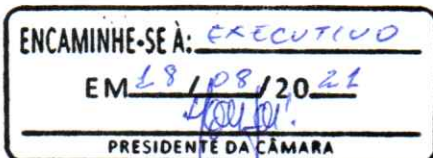 ENCAMINHE-SE À: EXECUTIVO
EM 18 / 08 / 20 21
PRESIDENTE DA CÂMARA